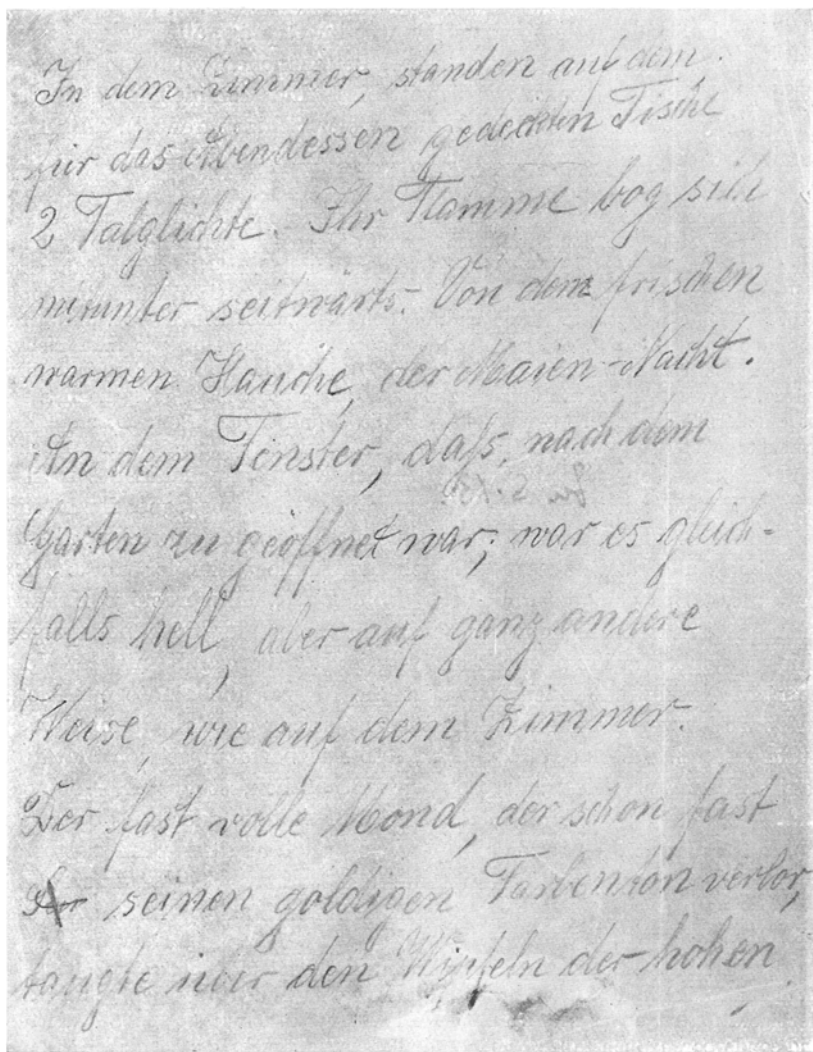 In dem Zimmer, standen auf dem,
für das Abendessen gedeckten Tische
2 Talglichte. Ihr Flamme bog sich
mitunter seitwärts. Von dem frischen
warmen Hauche, der Maien-Nacht.
An dem Fenster, daß, nach dem
Garten zu geöffnet war; war es gleich-
falls hell, aber auf ganz andere
Weise, wie auf dem Zimmer.
Der fast volle Mond, der schon fast
seinen goldigen Farbenton verlor,
über den Wipfeln der hohen